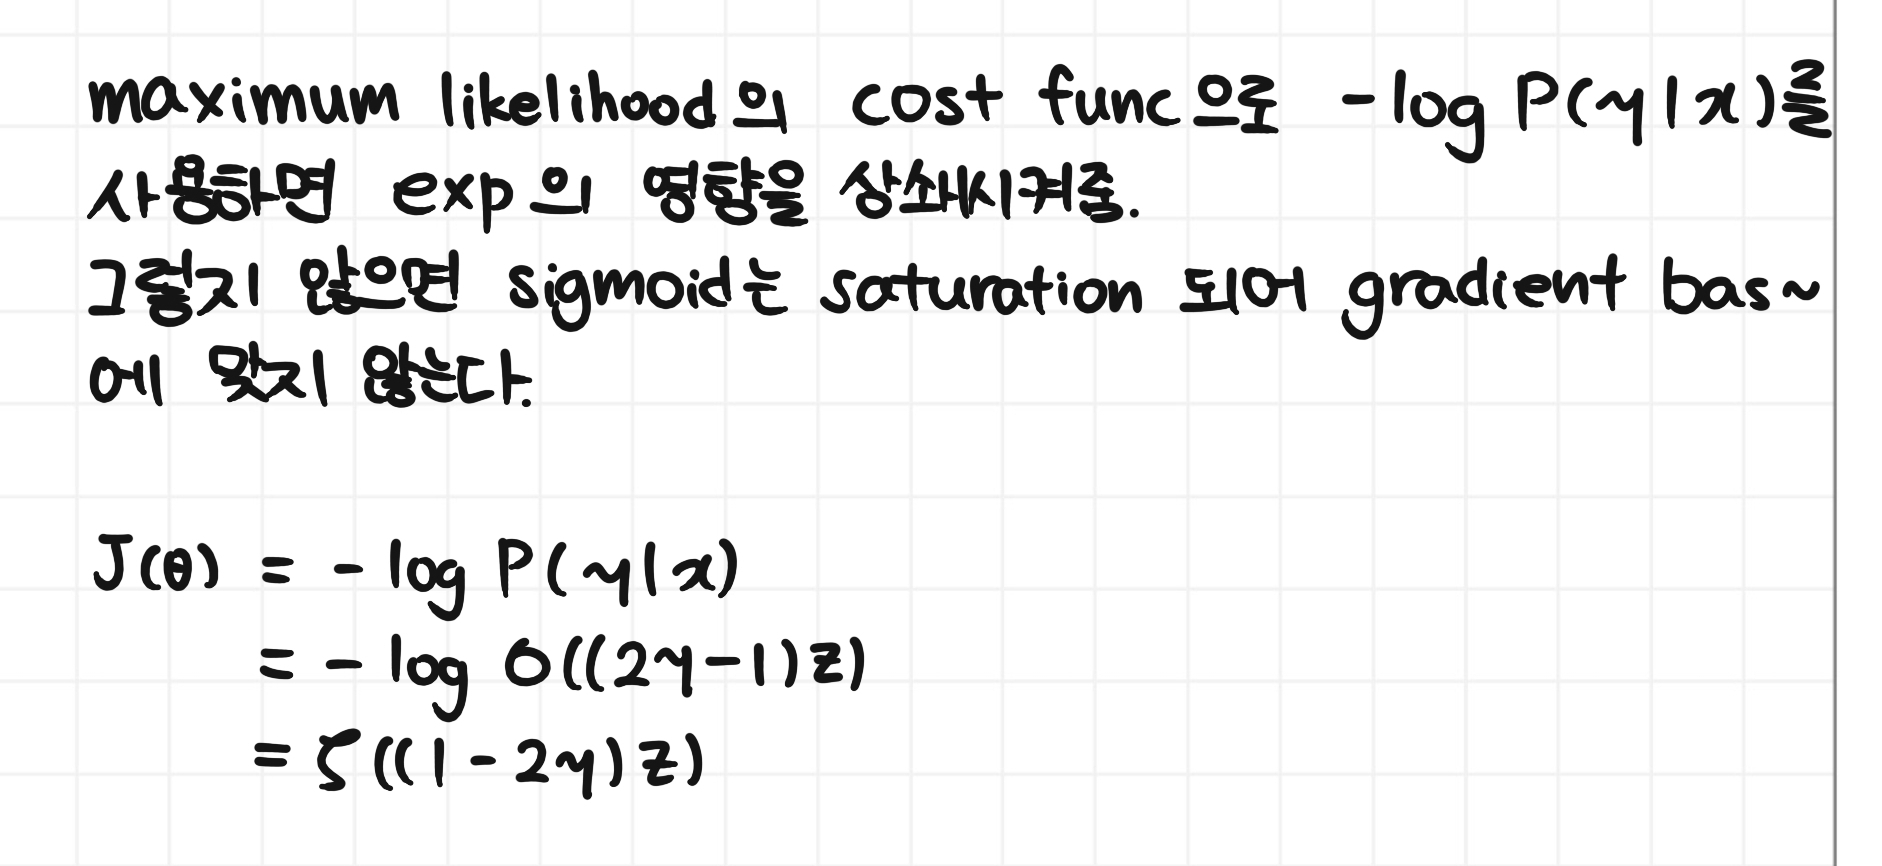 maximum likelihood의 cost func으로 -log P(y|x)를
사용하면 exp의 영향을 상쇄시켜줌.
그렇지 않으면 sigmoid는 saturation 되어 gradient bas~
에 맞지 않는다.
J(θ) = -log P(y|x)
= -log σ((2y-1)z)
= ζ((1-2y)z)